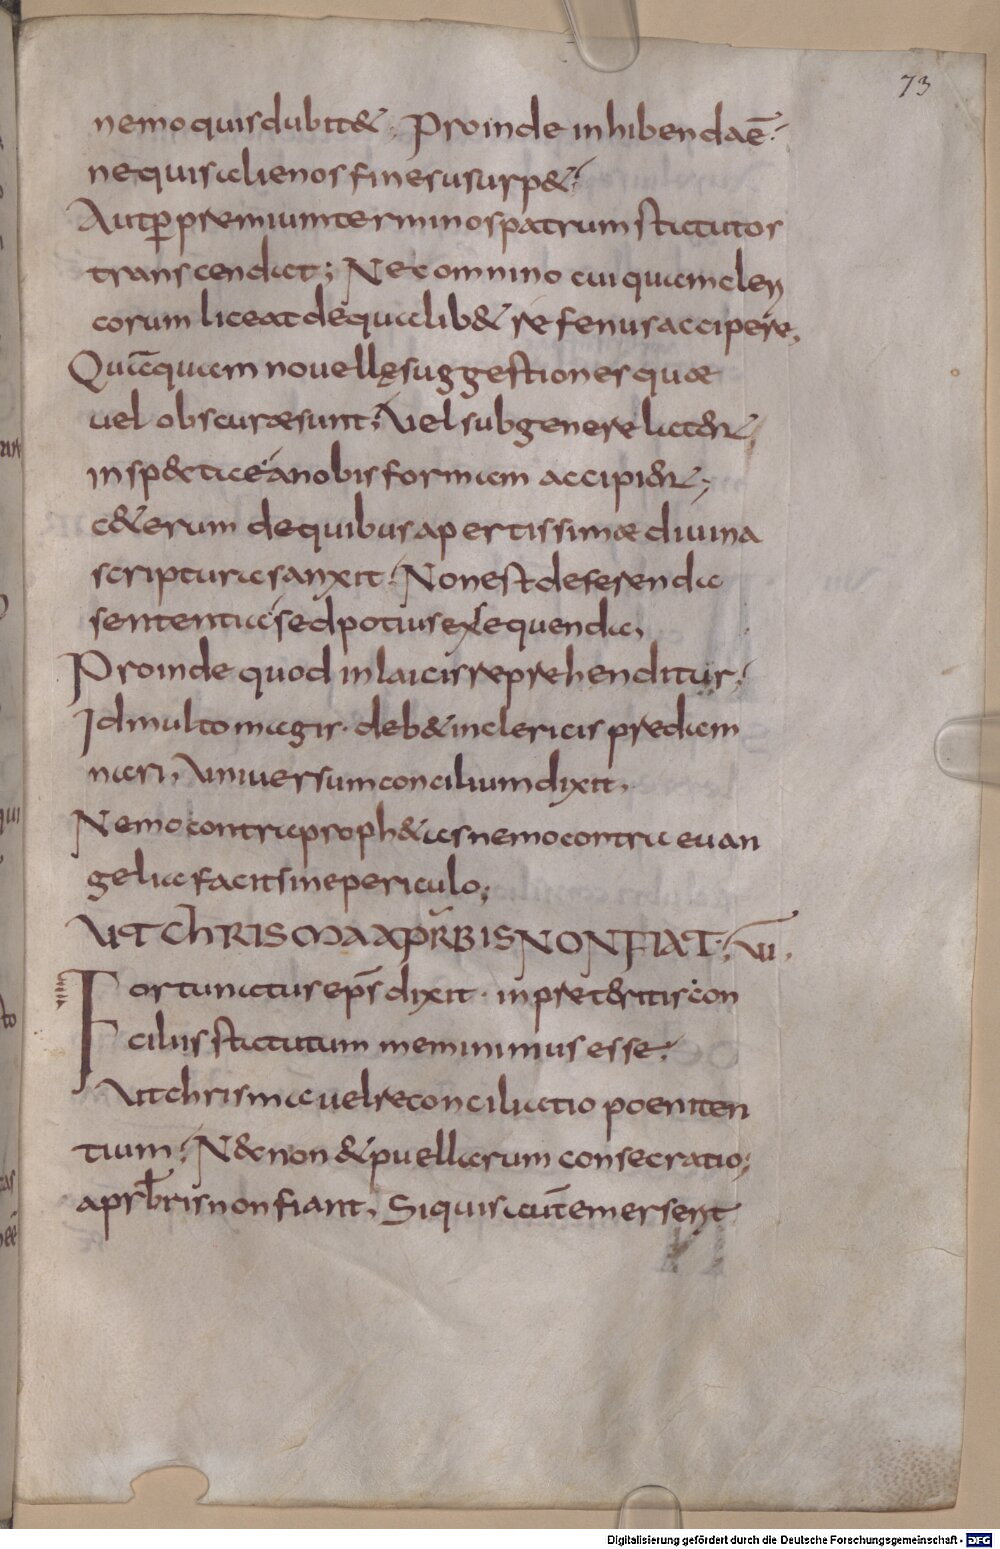 73
nemo quis dubit&. Proinde inhibenda ē.
ne quis alienos fines usurp&.
Aut ꝑ premium terminos patrum statutos
transcendat; Nec omnino cuiquam cleri
corum liceat de qualib& re fenus accipere,
Quāquam nouellę suggestiones quae
uel obscurae sunt, Vel sub genere lat&nt,
insp&tae a nobis formam accipi&nt;
c&erum de quibus apertissimae diuina
scriptura sanxit. Non est deferenda
sententia sed potius exsequenda,
Proinde quod in laicis reprehenditur.
Id multo magis. deb& in clericis predam
nari, Vniuersum concilium dixit,
Nemo contra proph&as nemo contra euan
gelia facit sine periculo;
VT CHRISMA A PRB̄IS NON FIAT; VI.
Fortunatus ep̄s dixit. in pret&ritis con
ciliis statutum meminimus esse.
Vt chrisma uel reconciliatio poeniten
tium. N&non & puellarum consecratio;
a prb̄ris non fiant, Siquis autem emerserit
Digitalisierung gefördert durch die Deutsche Forschungsgemeinschaft - DFG